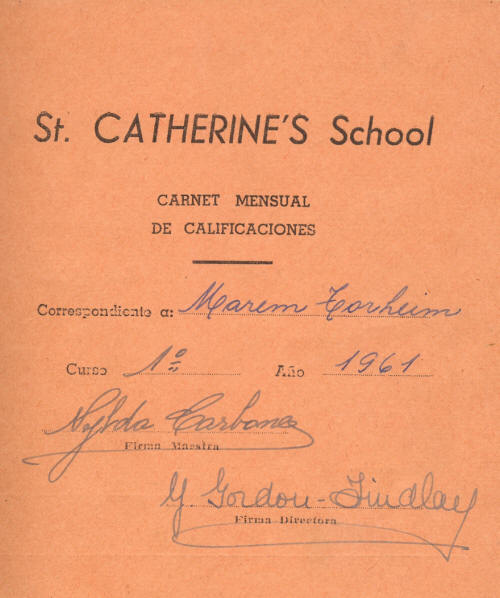 St. CATHERINE'S School
CARNET MENSUAL
DE CALIFICACIONES
Correspondiente a: Marem Torheim
Curso 1º Año 1961
Firma Maestra
Y. Gordon-Findlay
Firma Directora